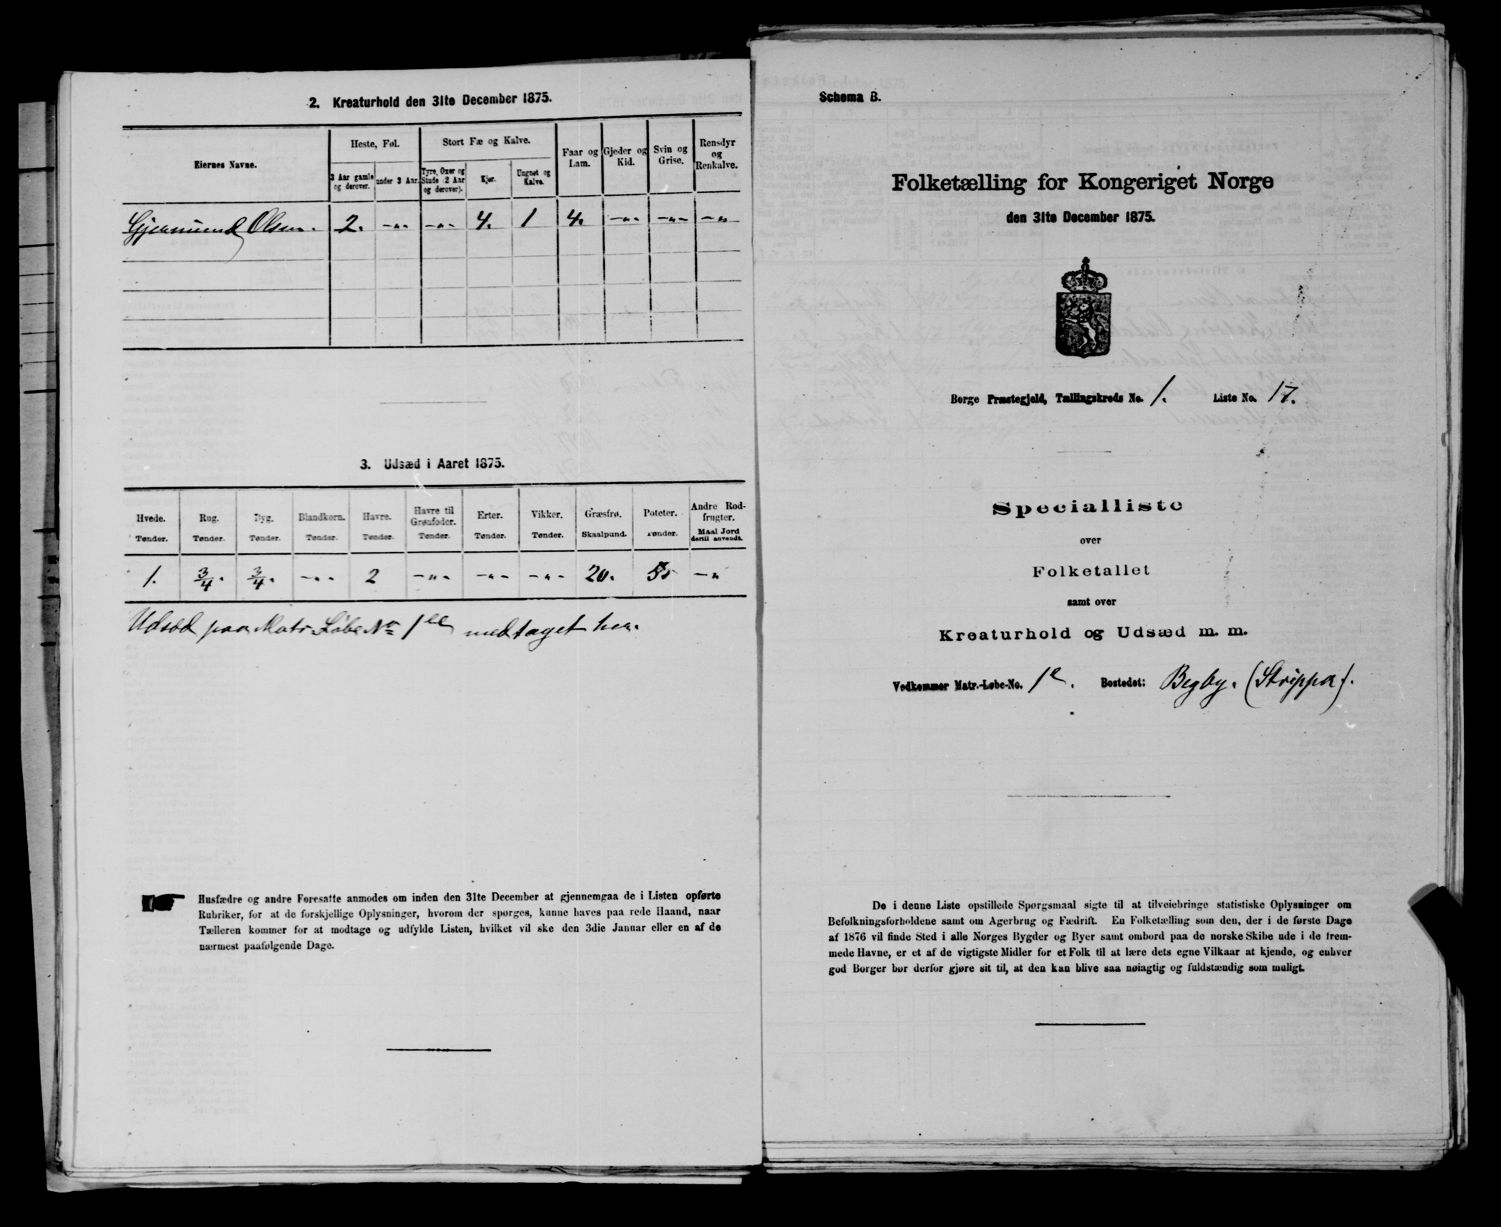 2. Kreaturhold den 31te December 1875.
Eiernes Navne.
Heste, Føl.
Stort Fæ og Kalve.
Faar og Lam.
Gjeder og Kid.
Svin og Grise.
Rensdyr og Renkalve.
3 Aar gamle og derover.
under 3 Aar.
Tyre, Oxer og Stude (2 Aar og derover).
Kjør.
Ungnøt og Kalve.
Gjermund Olsen. 2. -„- -„- 4. 1 4. -„- -„- -„
3. Udsæd i Aaret 1875.
Hvede. Rug. Byg. Blandkorn. Havre. Havre til Grønfoder. Erter. Vikker. Græsfrø. Poteter. Andre Rodfrugter.
Tønder. Tønder. Tønder. Tønder. Tønder. Tønder. Tønder. Tønder. Skaalpund. Tønder. Maal Jord dertil anvendt.
1. 3/4. 3/4. -„- 2 -„- -„- -„- 20. 5 -„
Udsæd paa Matr Løbe No 1ee medtaget her.
Husfædre og andre Foresatte anmodes om inden den 31te December at gjennemgaa de i Listen opførte
Rubriker, for at de forskjellige Oplysninger, hvorom der spørges, kunne haves paa rede Haand, naar
Tælleren kommer for at modtage og udfylde Listen, hvilket vil ske den 3die Januar eller en af de
nærmest paafølgende Dage.
Schema B.
Folketælling for Kongeriget Norge
den 31te December 1875.
Borge Præstegjeld, Tællingskreds No. 1. Liste No. 17.
Specialliste
over
Folketallet
samt over
Kreaturhold og Udsæd m. m.
Vedkommer Matr.-Løbe-No. 1e. Bostedet: Begby. (Strippa).
De i denne Liste opstillede Spørgsmaal sigte til at tilveiebringe statistiske Oplysninger om
Befolkningsforholdene samt om Agerbrug og Fædrift. En Folketælling som den, der i de første Dage
af 1876 vil finde Sted i alle Norges Bygder og Byer samt ombord paa de norske Skibe ude i de frem-
mede Havne, er et af de vigtigste Midler for et Folk til at lære dets egne Vilkaar at kjende, og enhver
god Borger bør derfor gjøre sit til, at den kan blive saa nøiagtig og fuldstændig som muligt.